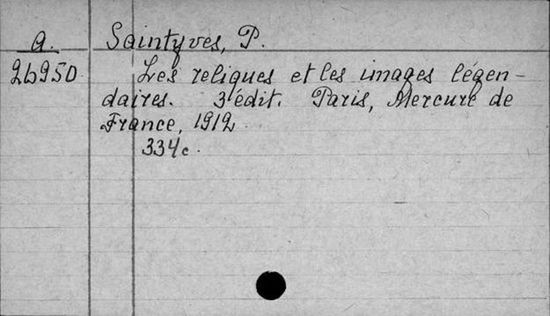 a. Saintyves, P.
26950 Les reliques et les images légen-
daires. 3'édit. Paris, Mercure de
France, 1912
334c.